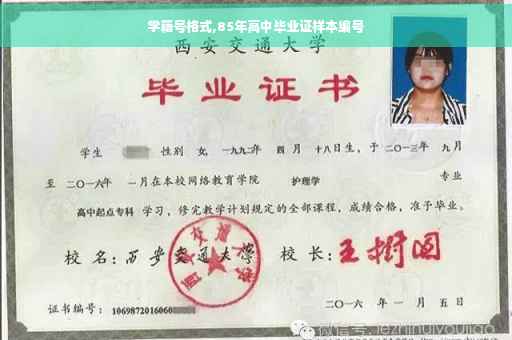 学籍号格式,85年高中毕业证样本编号
西安交通大学
毕业证书
学生 性别 女, 一九九二年 四 月 十八日生, 于 二〇一三年 九月
至 二〇一六年 一月在本校网络教育学院 护理学 专业
高中起点专科 学习, 修完教学计划规定的全部课程, 成绩合格, 准予毕业。
校 名: 西安交通大学 校 长: 王树国
西安交通大学
证书编号: 1069872016060
二〇一六 年 一 月 五 日
微信号: jezhinuiyoujiao